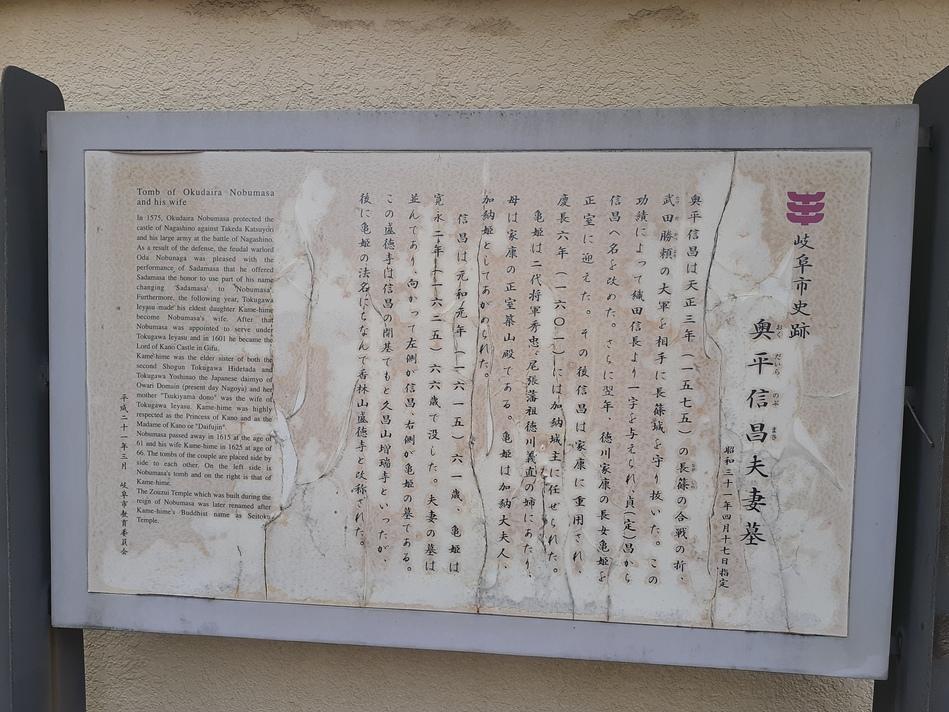 岐阜市史跡
奥平信昌夫妻墓
おくだいらのぶまさ
昭和三十一年四月十七日指定
奥平信昌は天正三年(一五七五)の長篠の合戦の折、
武田勝頼の大軍を相手に長篠城を守り抜いた。この
功績によって織田信長より一字を与えられ、貞(定)昌から
信昌へ名を改めた。さらに翌年、徳川家康の長女亀姫を
正室に迎えた。その後信昌は家康に重用され、
慶長六年(一六〇一)には加納城主に任ぜられた。
亀姫は二代将軍秀忠、尾張藩祖徳川義直の姉にあたり、
母は家康の正室築山殿である。亀姫は加納大夫人、
加納姫としてあがめられた。
信昌は元和元年(一六一五)六一歳、亀姫は
寛永二年(一六二五)六六歳で没した。夫妻の墓は
並んであり、向かって左側が信昌、右側が亀姫の墓である。
この盛徳寺は信昌の開基でもと久昌山増瑞寺といったが、
後に亀姫の法名にちなんで香林山盛徳寺と改称された。
Tomb of Okudaira Nobumasa
and his wife
In 1575, Okudaira Nobumasa protected the
castle of Nagashino against Takeda Katsuyori
and his large army at the battle of Nagashino.
As a result of the defense, the feudal warlord
Oda Nobunaga was pleased with the
performance of Sadamasa that he offered
Sadamasa the honor to use part of his name
changing 'Sadamasa' to 'Nobumasa'.
Furthermore, the following year, Tokugawa
Ieyasu made his eldest daughter Kame-hime
become Nobumasa's wife. After that
Nobumasa was appointed to serve under
Tokugawa Ieyasu and in 1601 he became the
Lord of Kano Castle in Gifu.
Kame-hime was the elder sister of both the
second Shogun Tokugawa Hidetada and
Tokugawa Yoshinao the Japanese daimyo of
Owari Domain (present day Nagoya) and her
mother "Tsukiyama dono" was the wife of
Tokugawa Ieyasu. Kame-hime was highly
respected as the Princess of Kano and as the
Madame of Kano or "Daifujin"
Nobumasa passed away in 1615 at the age of
61 and his wife Kame-hime in 1625 at age of
66. The tombs of the couple are placed side by
side to each other. On the left side is
Nobumasa's tomb and on the right is that of
Kame-hime.
The Zouzui Temple which was built during the
reign of Nobumasa was later renamed after
Kame-hime's Buddhist name as Seitoku
Temple.
平成二十一年三月 岐阜市教育委員会